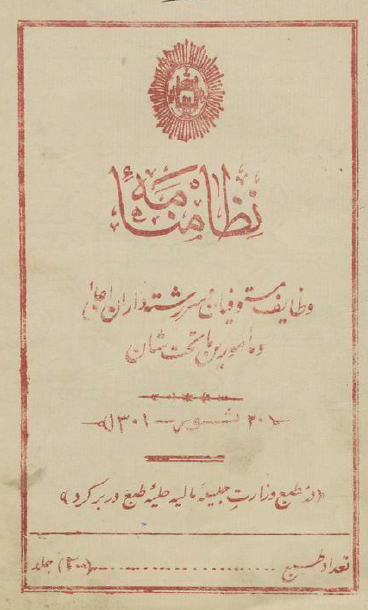 نظامنامه
وظایف مستوفیان سررشته‌داران اعلی
و مامورین ماتحت شان
۲۰ ثور ۱۳۰۱
(در مطبع وزارت جلیله مالیه حلیه طبع در بر کرد)
تعداد طبع .......................... جلد